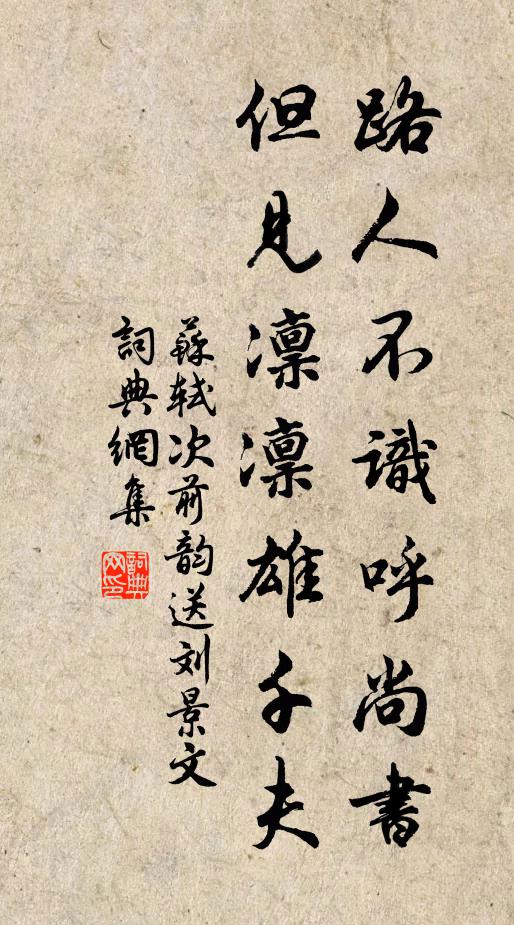 路人不識呼尚書
但見凛凛雄千夫
蘇轼次前韵送刘景文
詞典網集
詞典网印